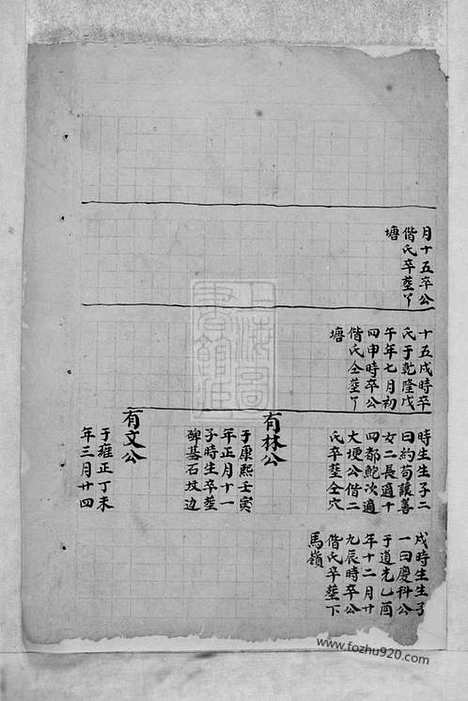 月十五卒公
偕氏卒塟丫
塘
十五戌時卒
氏于乾隆戊
午年七月初
四申時卒公
偕氏仝塟丫
塘
時生生子二
曰約苟讓善
女二長適十
四都鮑次適
大埂公偕二
氏卒塟仝穴
有林公
于康熙壬寅
年正月十一
子時生卒塟
碑碁石坟边
有文公
于雍正丁未
年三月廿四
戌時生生子
一曰慶科公
于道光乙酉
年十二月廿
九辰時卒公
偕氏卒塟下
馬嶺
上海圖
書館藏
www.fozhu920.com